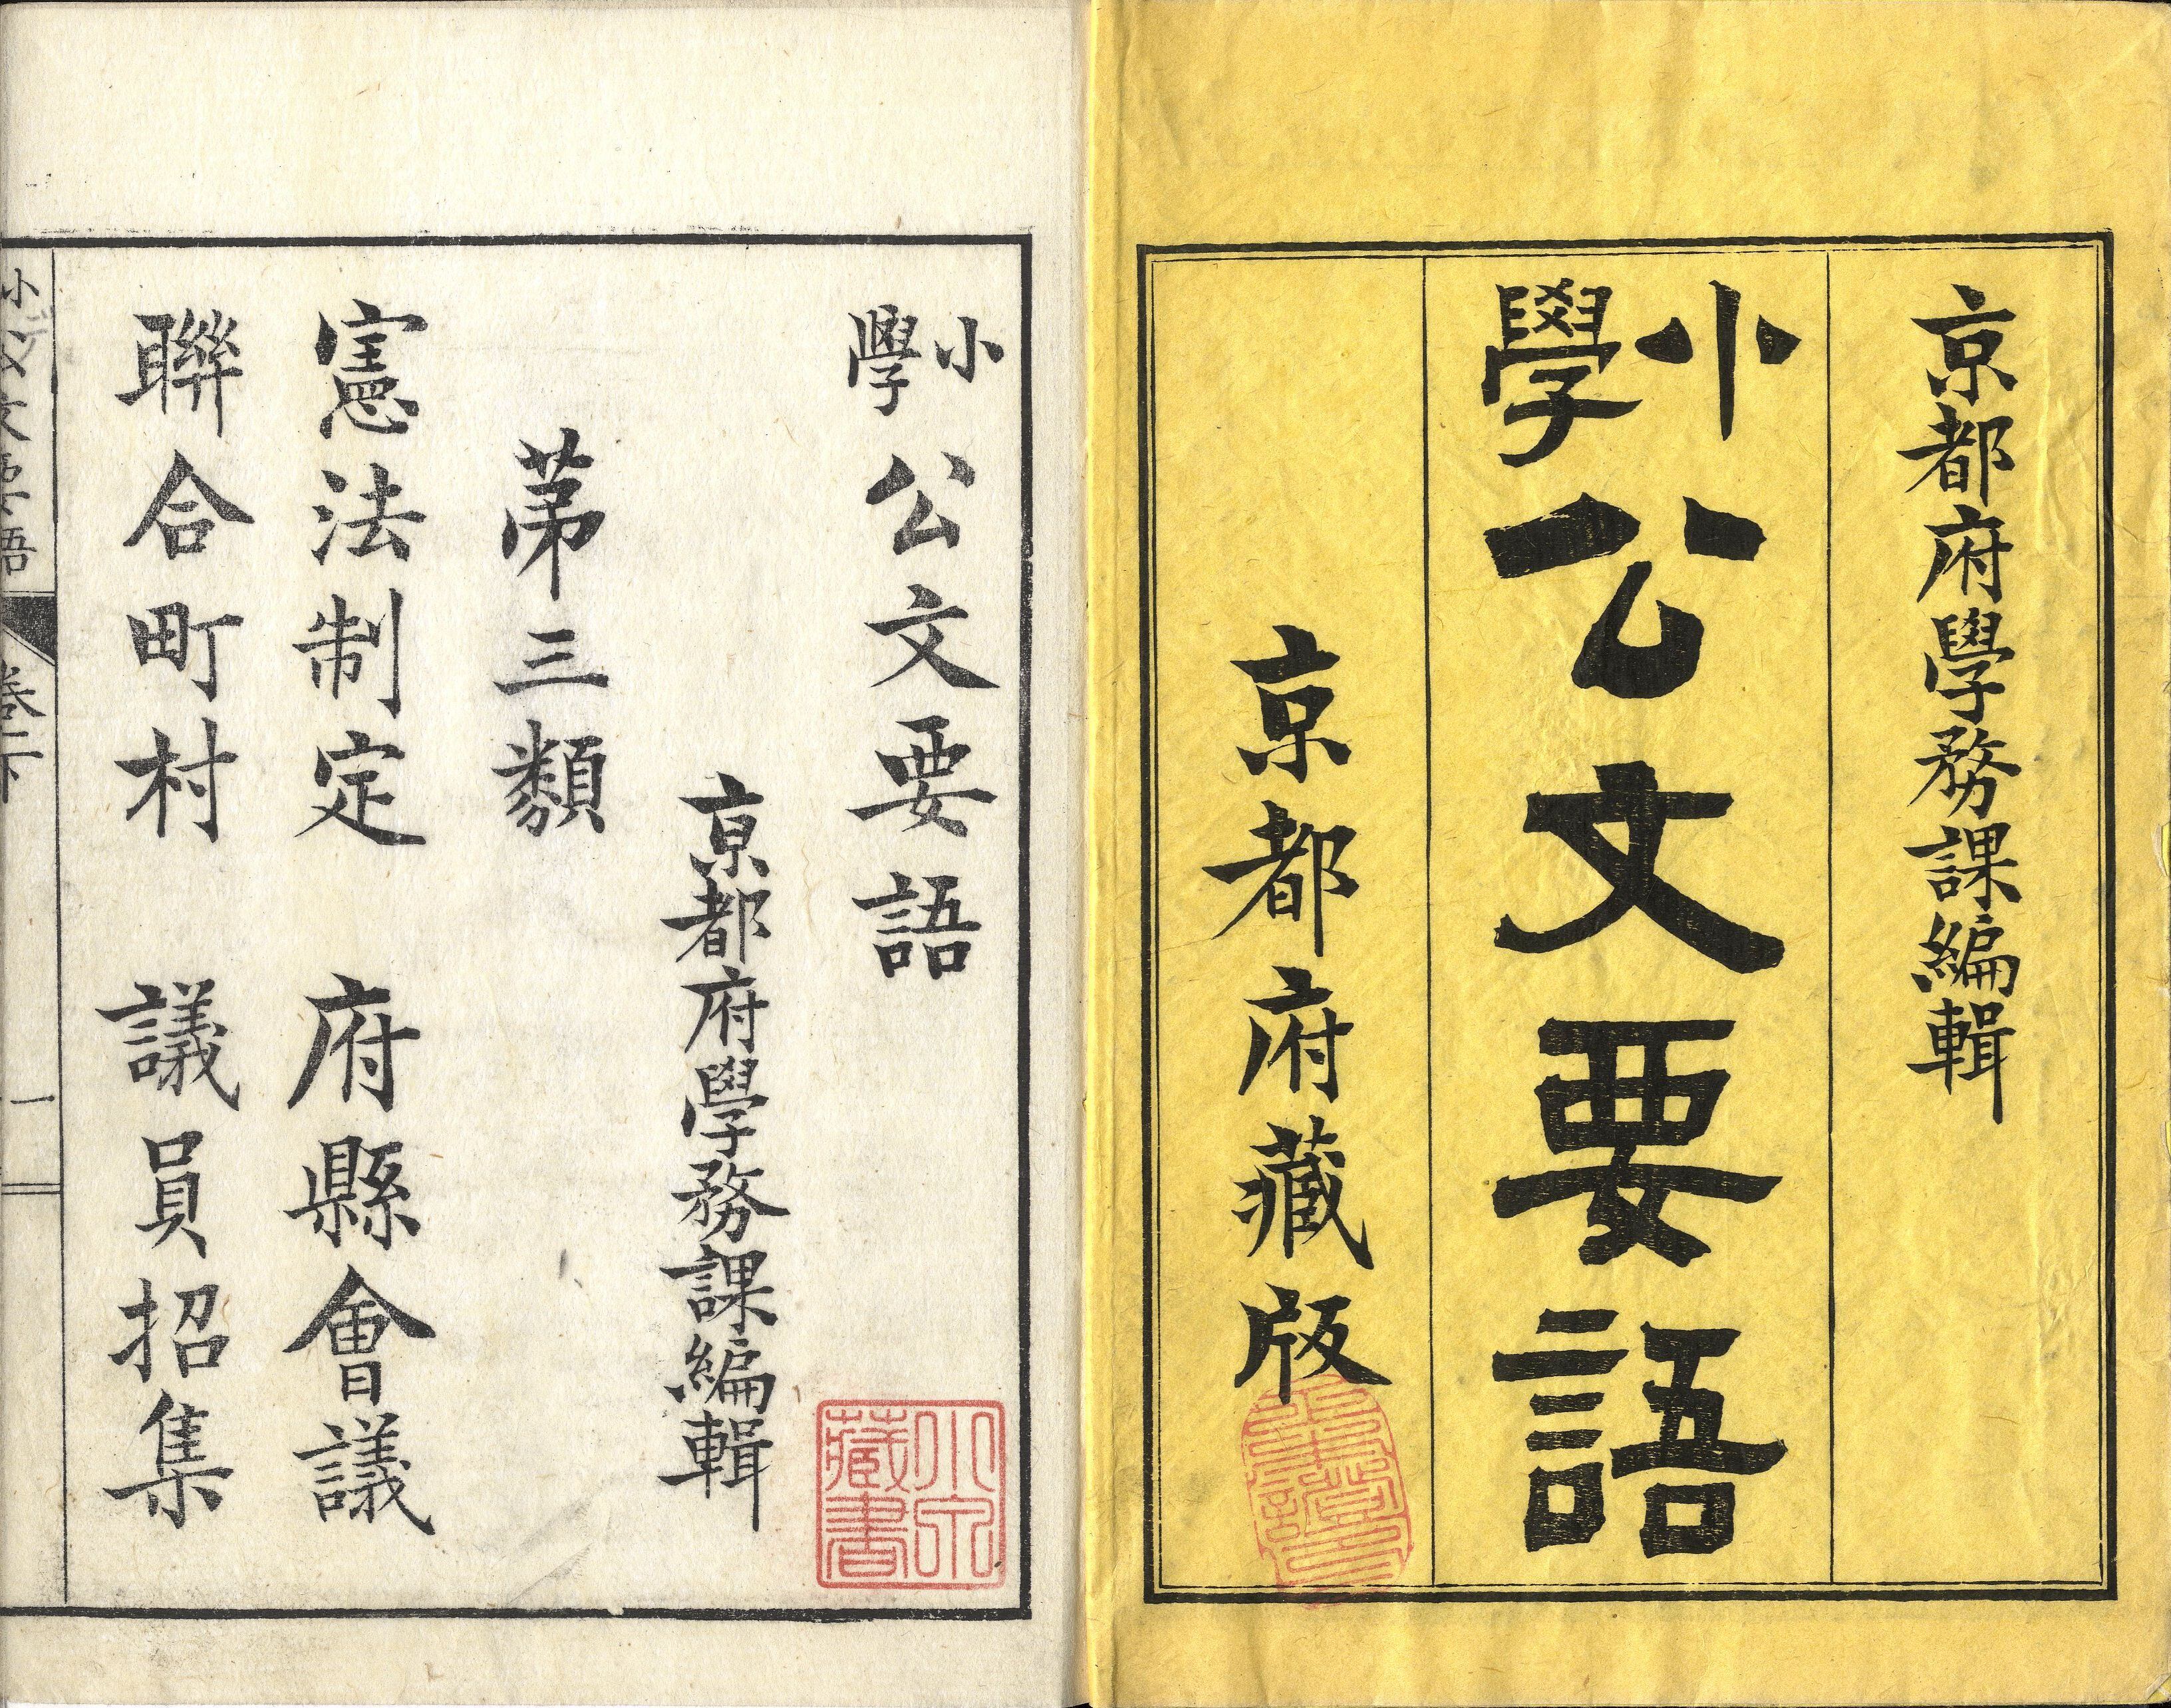 京都府學務課編輯
小學公文要語
京都府藏版
小學公文要語
京都府學務課編輯
苐三類
憲法制定　府縣會議
聯合町村　議員招集
小學公文要語　卷二下　一
藏書